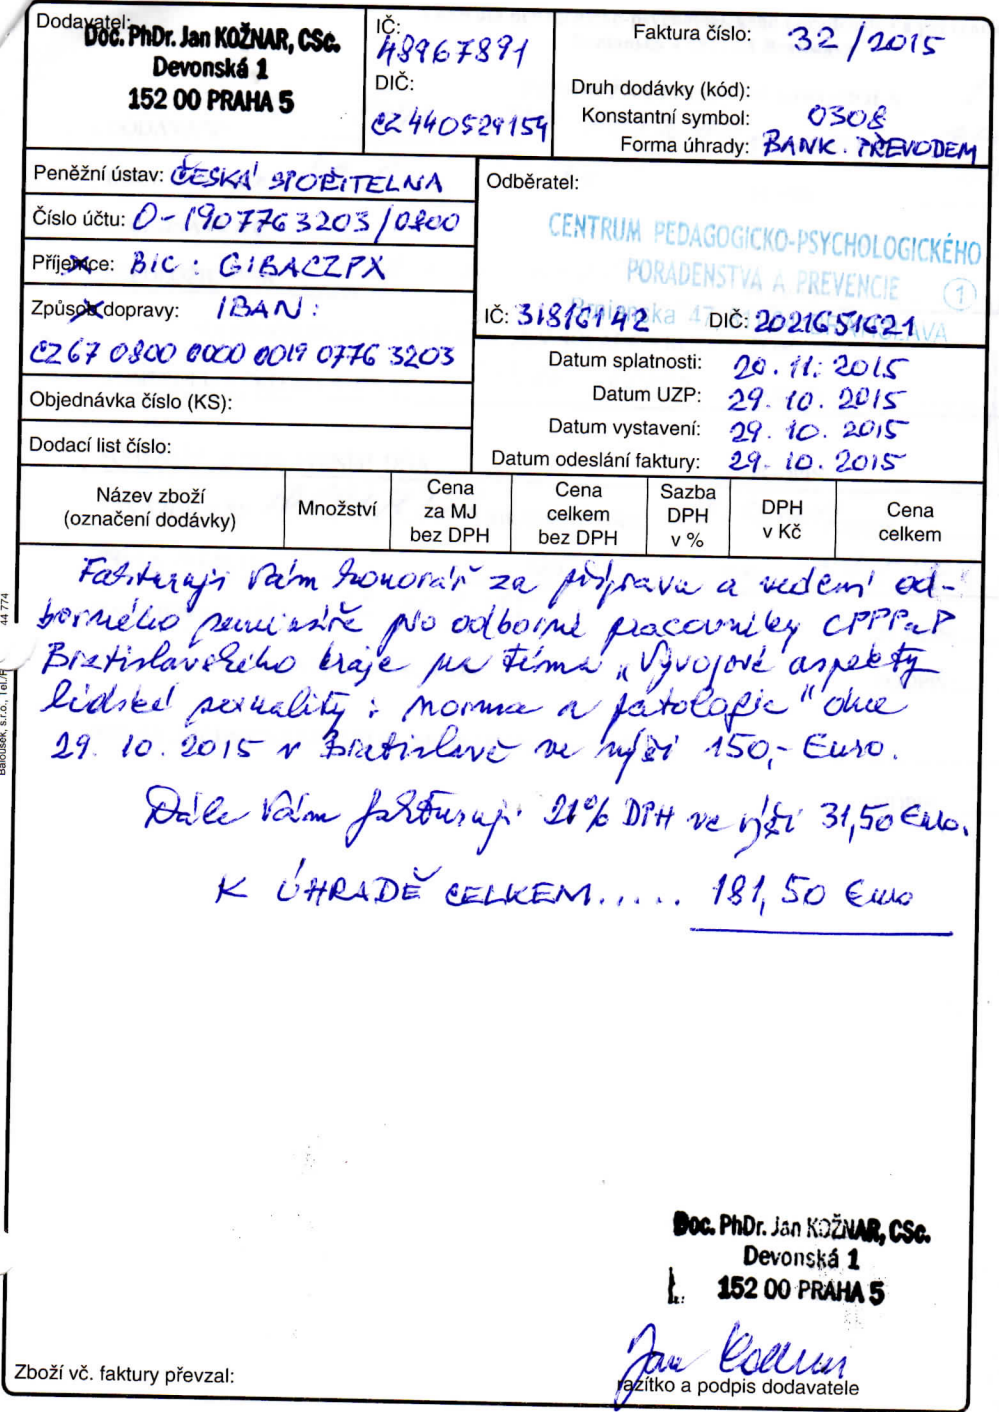 Dodavatel:
Doc. PhDr. Jan KOŽNAR, CSc.
Devonská 1
152 00 PRAHA 5
IČ:
48967891
DIČ:
CZ440529154
Faktura číslo: 32/2015
Druh dodávky (kód):
Konstantní symbol: 0308
Forma úhrady: BANK. PŘEVODEM
Peněžní ústav: ČESKÁ SPOŘITELNA
Číslo účtu: 0-1907763203/0800
Příjemce: BIC: GIBACZPX
Způsob dopravy: IBAN:
CZ67 0800 0000 0019 0776 3203
Objednávka číslo (KS):
Dodací list číslo:
Odběratel:
CENTRUM PEDAGOGICKO-PSYCHOLOGICKÉHO
PORADENSTVA A PREVENCIE 1
IČ: 31816142 DIČ: 2021651621
Datum splatnosti: 20. 11. 2015
Datum UZP: 29. 10. 2015
Datum vystavení: 29. 10. 2015
Datum odeslání faktury: 29. 10. 2015
Název zboží
(označení dodávky)
Množství
Cena
za MJ
bez DPH
Cena
celkem
bez DPH
Sazba
DPH
v %
DPH
v Kč
Cena
celkem
Fakturuji Vám honorář za přípravu a vedení od-
borného semináře pro odborné pracovníky CPPPaP
Bratislavského kraje na téma „Vývojové aspekty
lidské sexuality: norma a patologie" dne
29. 10. 2015 v Bratislavě ve výši 150,- Euro.
Dále Vám fakturuji 21% DPH ve výši 31,50 Euro.
K ÚHRADĚ CELKEM..... 181,50 Euro
44 774
Balousek, s.r.o., Tel./F
Doc. PhDr. Jan KOŽNAR, CSc.
Devonská 1
152 00 PRAHA 5
Zboží vč. faktury převzal:
razítko a podpis dodavatele